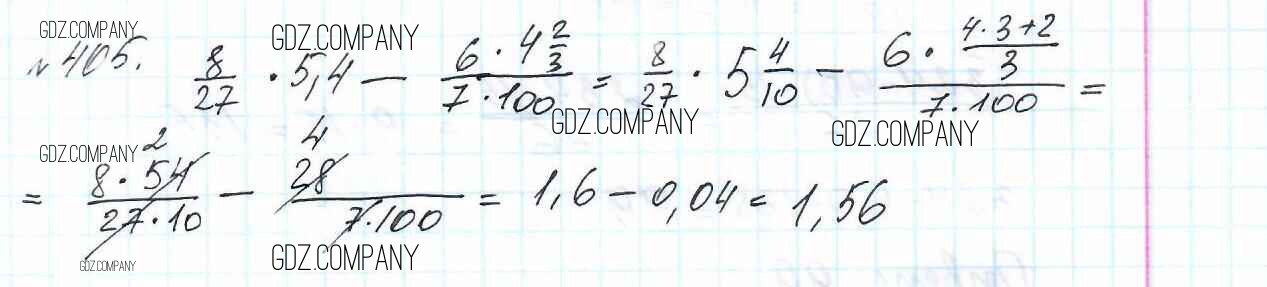 GDZ.COMPANY GDZ.COMPANY
№405. 8/27 · 5,4 − (6 · 4 2/3)/(7 · 100) = 8/27 · 5 4/10 − (6 · (4·3+2)/3)/(7 · 100) =
GDZ.COMPANY GDZ.COMPANY
GDZ.COMPANY 2 4
= (8 · 54)/(27 · 10) − 28/(7 · 100) = 1,6 − 0,04 = 1,56
GDZ.COMPANY GDZ.COMPANY